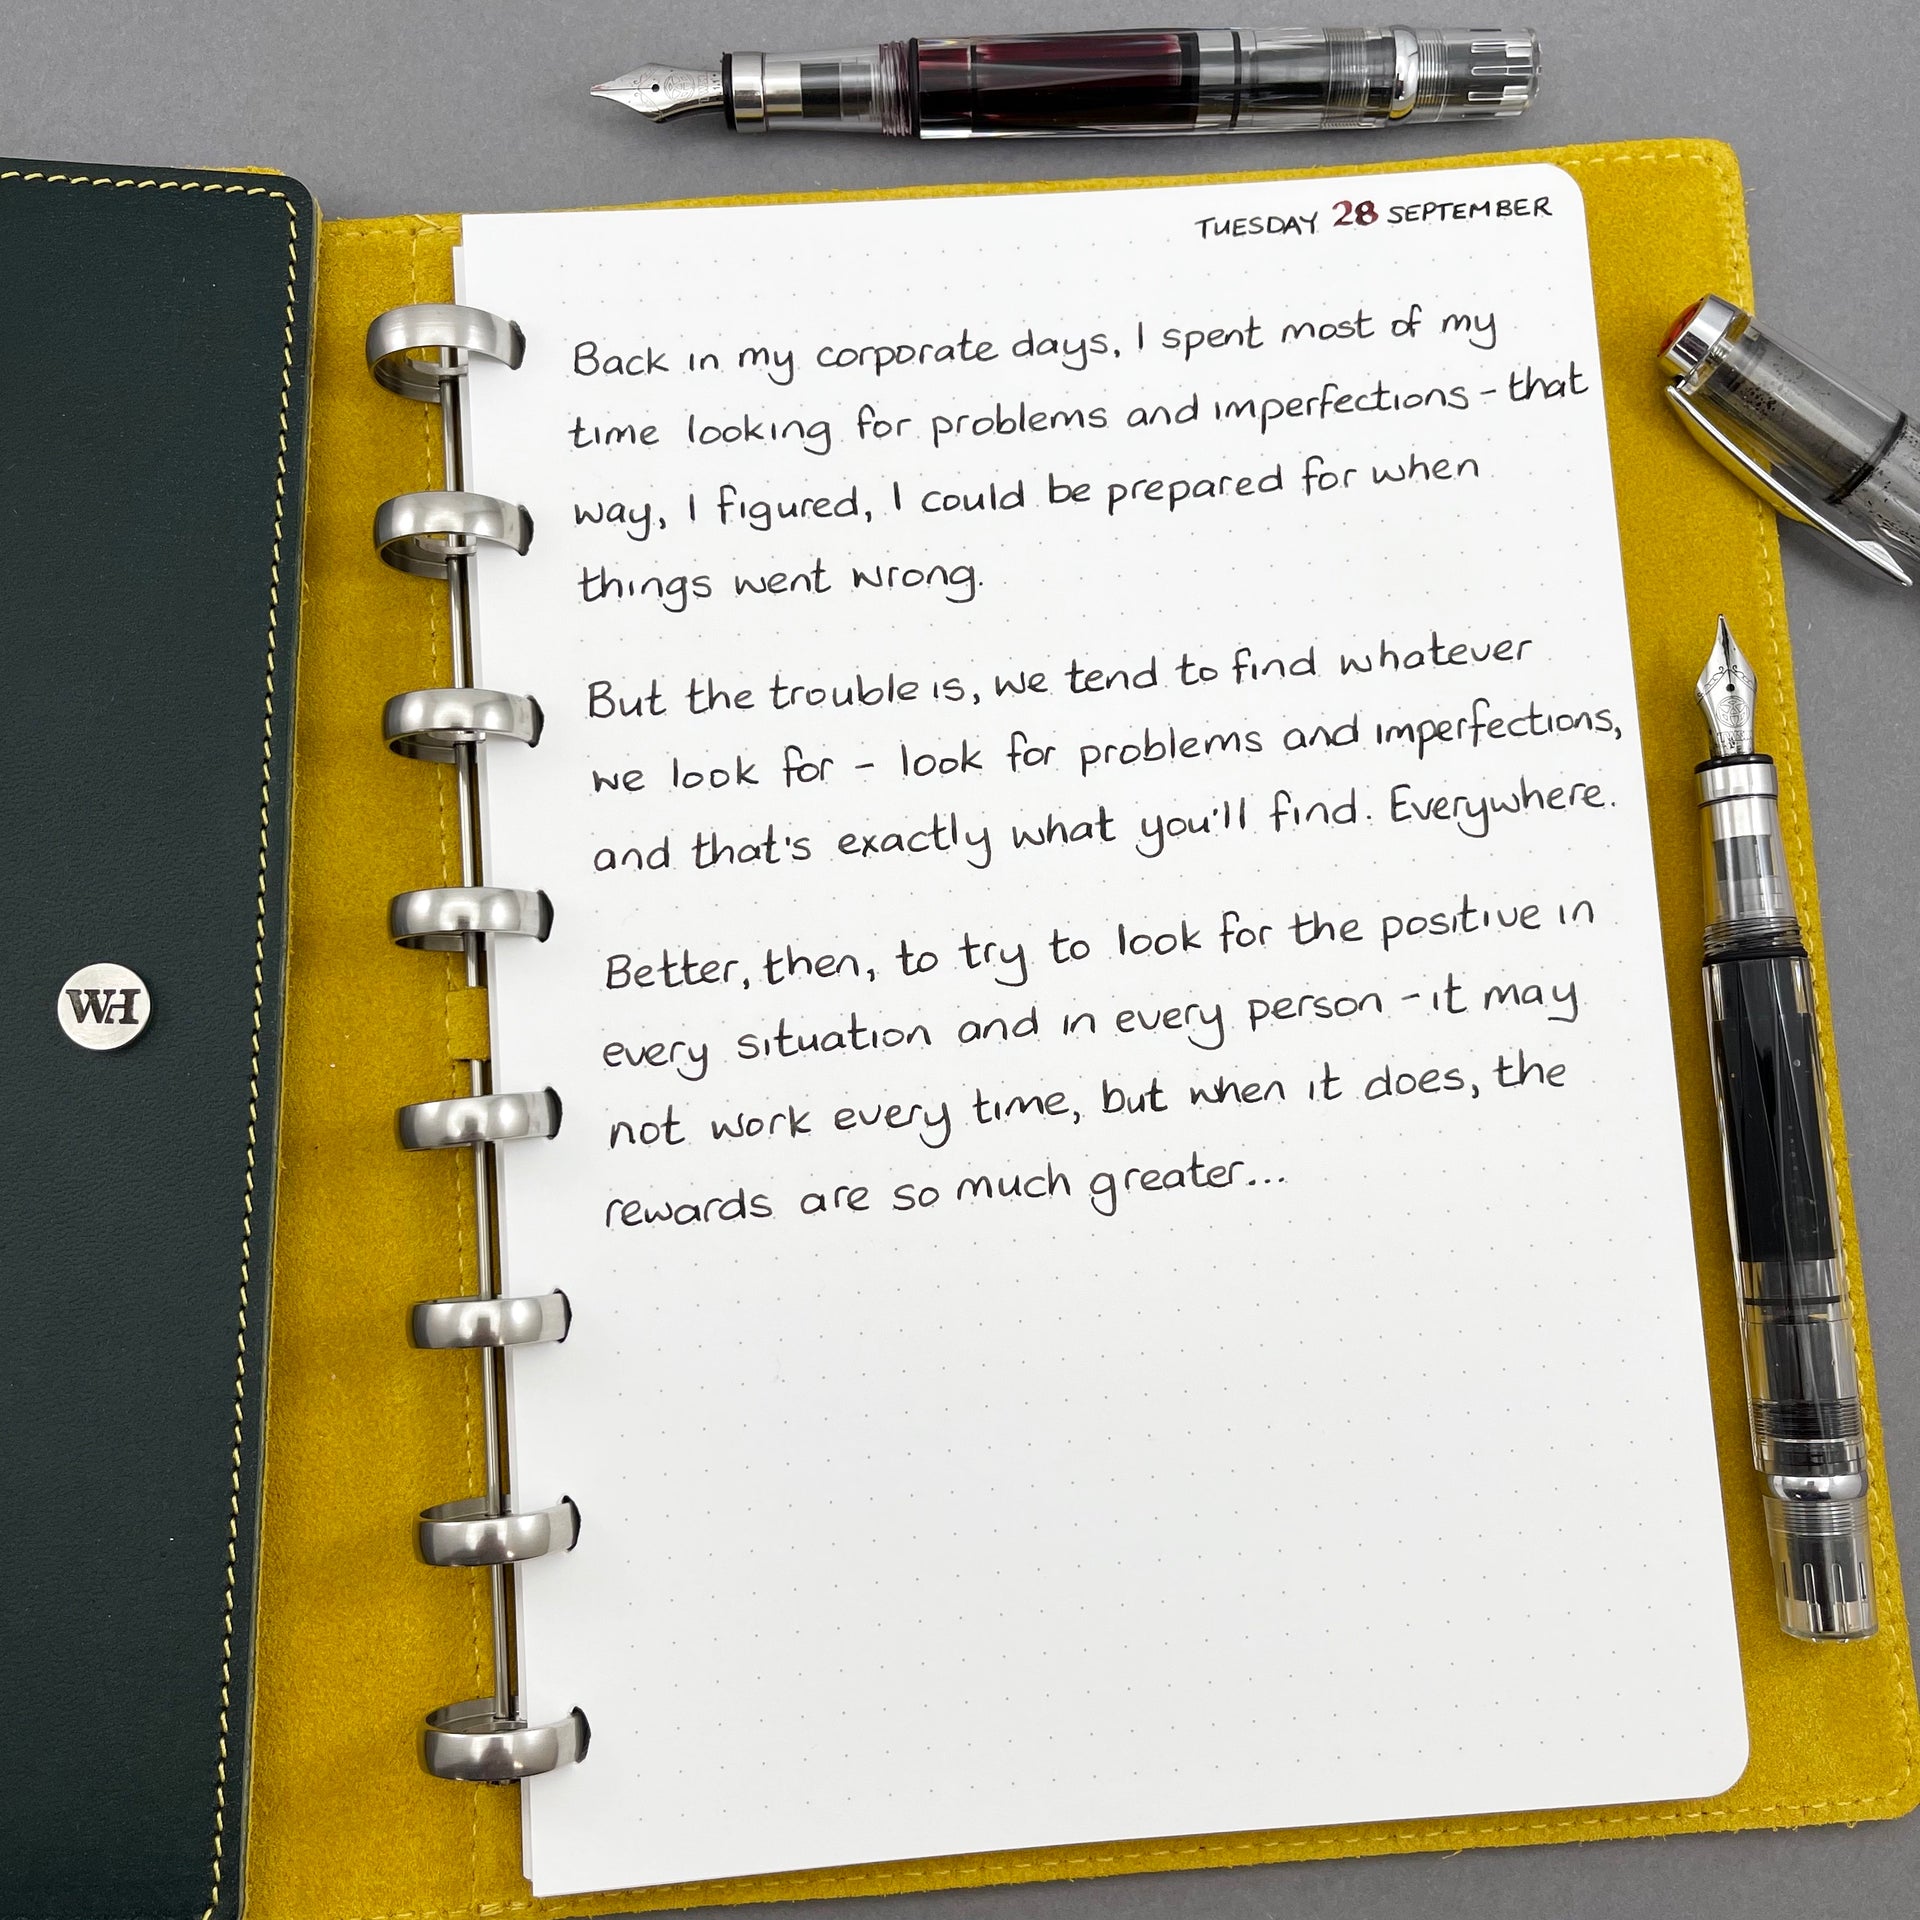 TUESDAY 28 SEPTEMBER
Back in my corporate days, I spent most of my
time looking for problems and imperfections - that
way, I figured, I could be prepared for when
things went wrong.
But the trouble is, we tend to find whatever
we look for - look for problems and imperfections,
and that's exactly what you'll find. Everywhere.
Better, then, to try to look for the positive in
every situation and in every person - it may
not work every time, but when it does, the
rewards are so much greater...
WH